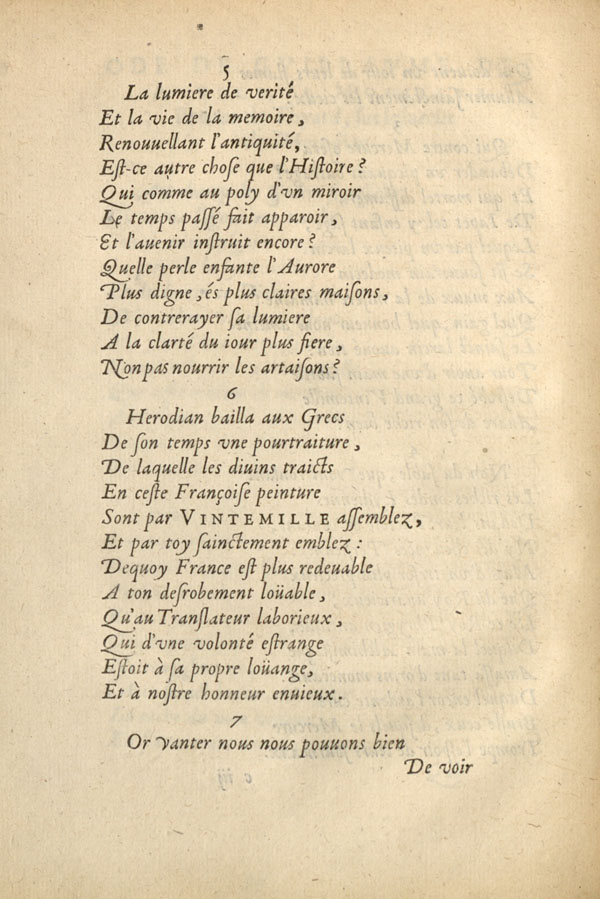 5
La lumiere de verité
Et la vie de la memoire,
Renouuellant l'antiquité,
Est-ce autre chose que l'Histoire?
Qui comme au poly d'vn miroir
Le temps passé fait apparoir,
Et l'auenir instruit encore?
Quelle perle enfante l'Aurore
Plus digne, és plus claires maisons,
De contrerayer sa lumiere
A la clarté du iour plus fiere,
N'on pas nourrir les artaisons?
6
Herodian bailla aux Grecs
De son temps vne pourtraiture,
De laquelle les diuins traicts
En ceste Françoise peinture
Sont par VINTEMILLE assemblez,
Et par toy sainctement emblez:
Dequoy France est plus redeuable
A ton desrobement loüable,
Qu'au Translateur laborieux,
Qui d'vne volonté estrange
Estoit à sa propre loüange,
Et à nostre honneur enuieux.
7
Or vanter nous nous pouuons bien
De voir